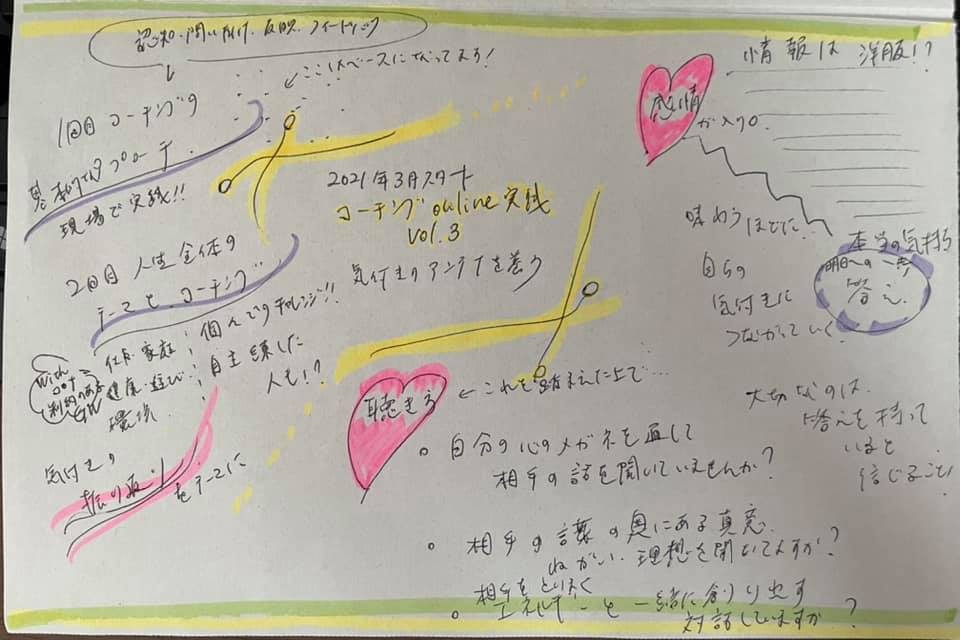 認知・問いかけ・反映・フィードバック
ここはベースになってます!
1回目 コーチングの
基本的アプローチ
現場で実践!!
2021年3月スタート
コーチング online 実践
vol.3
気付きのアンテナを養う
2回目 人生全体の
テーマとコーチング
個人でのチャレンジ!!
自主練した
人も!?
仕事・家庭
健康・遊び
環境
with
制約のある
GW
気付きの
振り返り
をテーマに
聴きう
←これを踏まえた上で…
自分の心のメガネを通して
相手の話を聞いていませんか?
相手の言葉の奥にある真意、
ねがい、理想を聞いてますか?
相手をとりまく
エネルギーと一緒に創り出す
対話していますか?
情報は 洋服!?
感情
が入り口
味わうほどに
自らの
気付きに
つながっていく
本当の気持ち
明日への一歩
答え
大切なのは
答えを持って
いると
信じること!